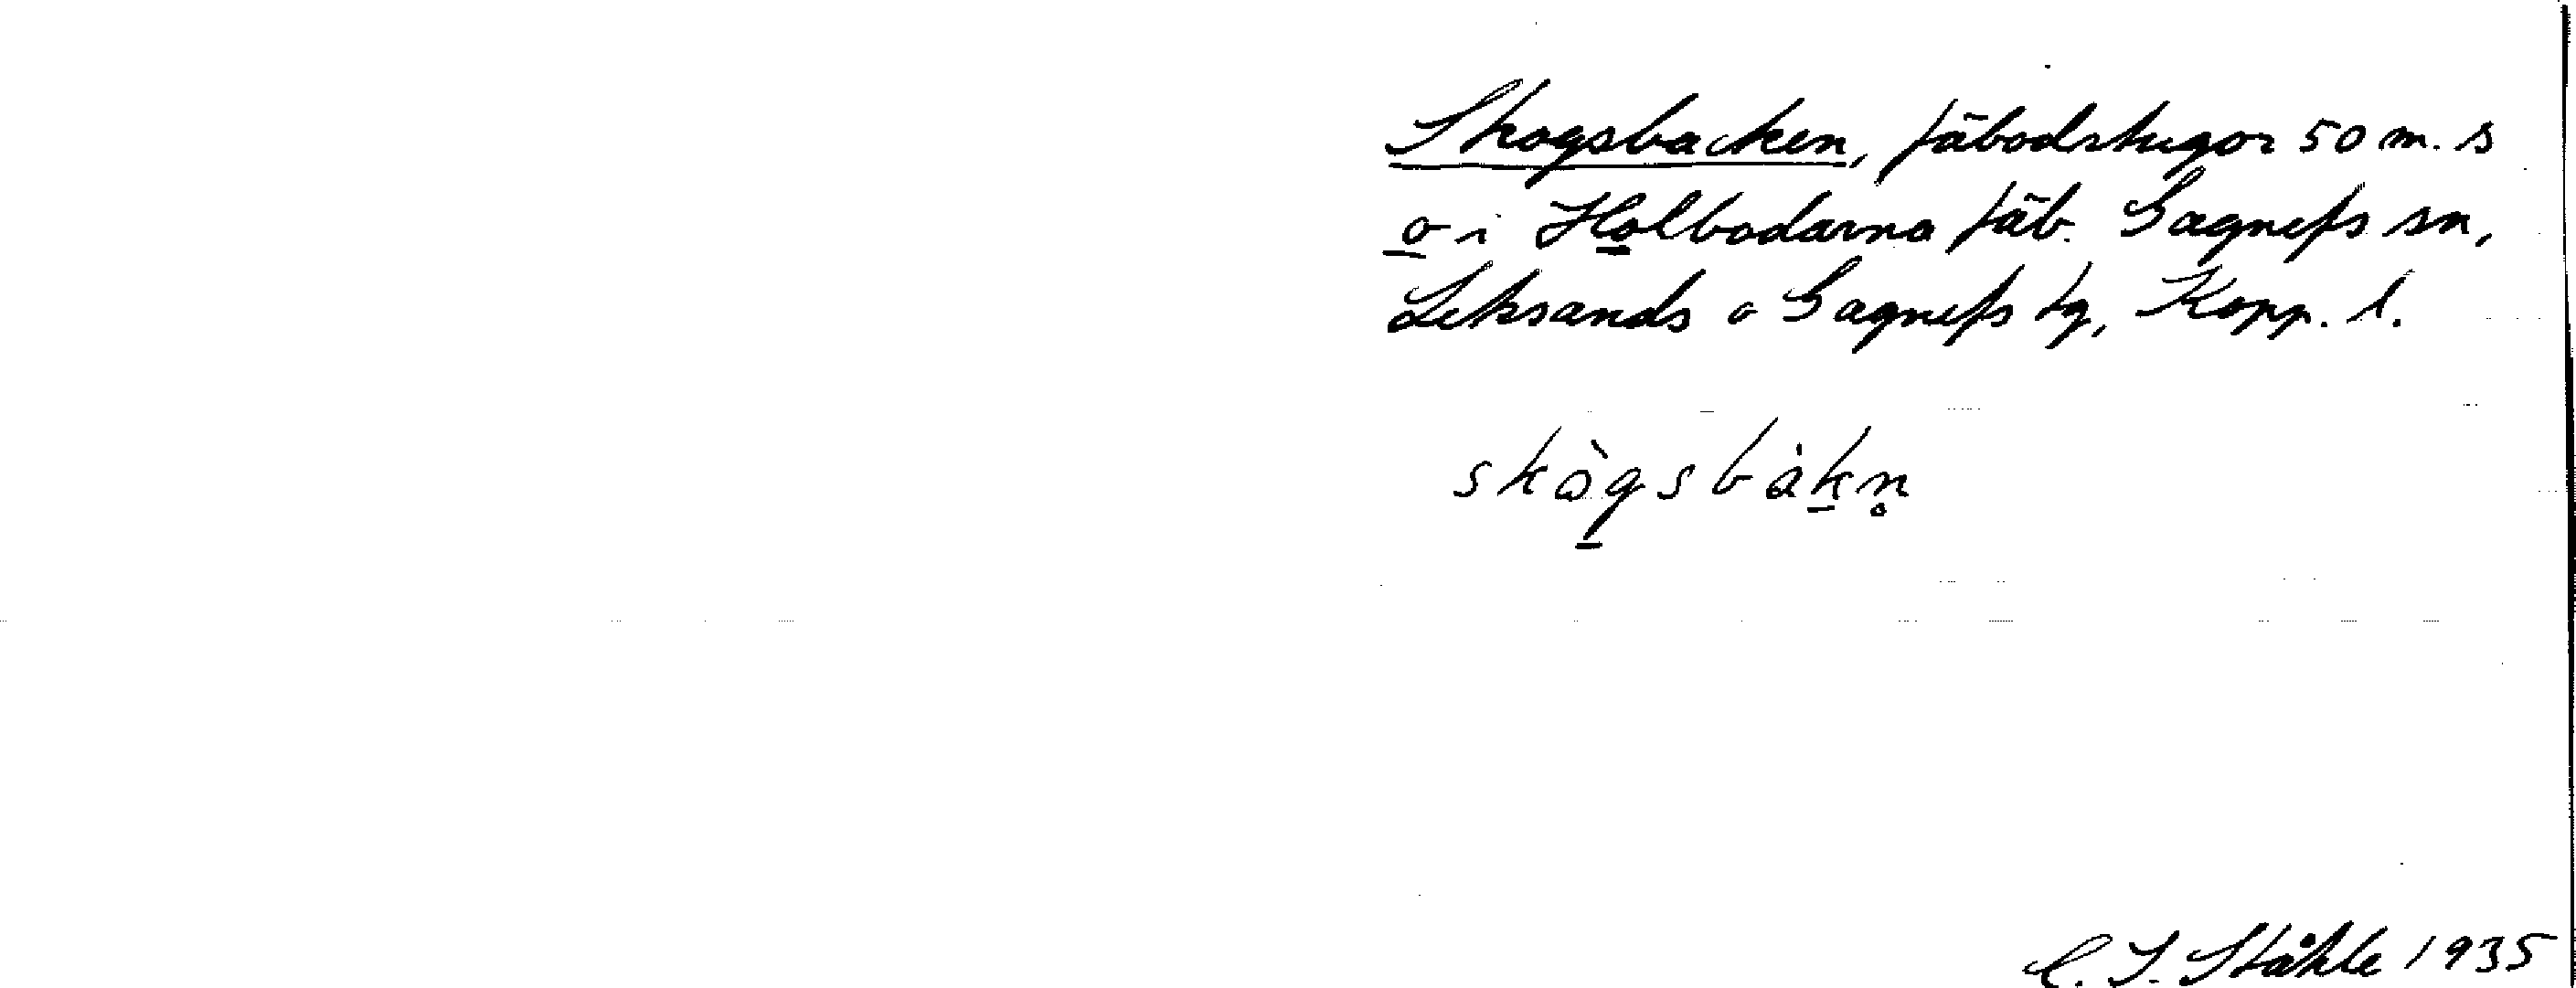 Skogsbacken, fäbodstugor 50 m. s
o i Holbodarna fäb. Gagnefs sn,
Leksands o Gagnefs tg, Kopp. l.
skògsbàkn̥
C. I. Ståhle 1935